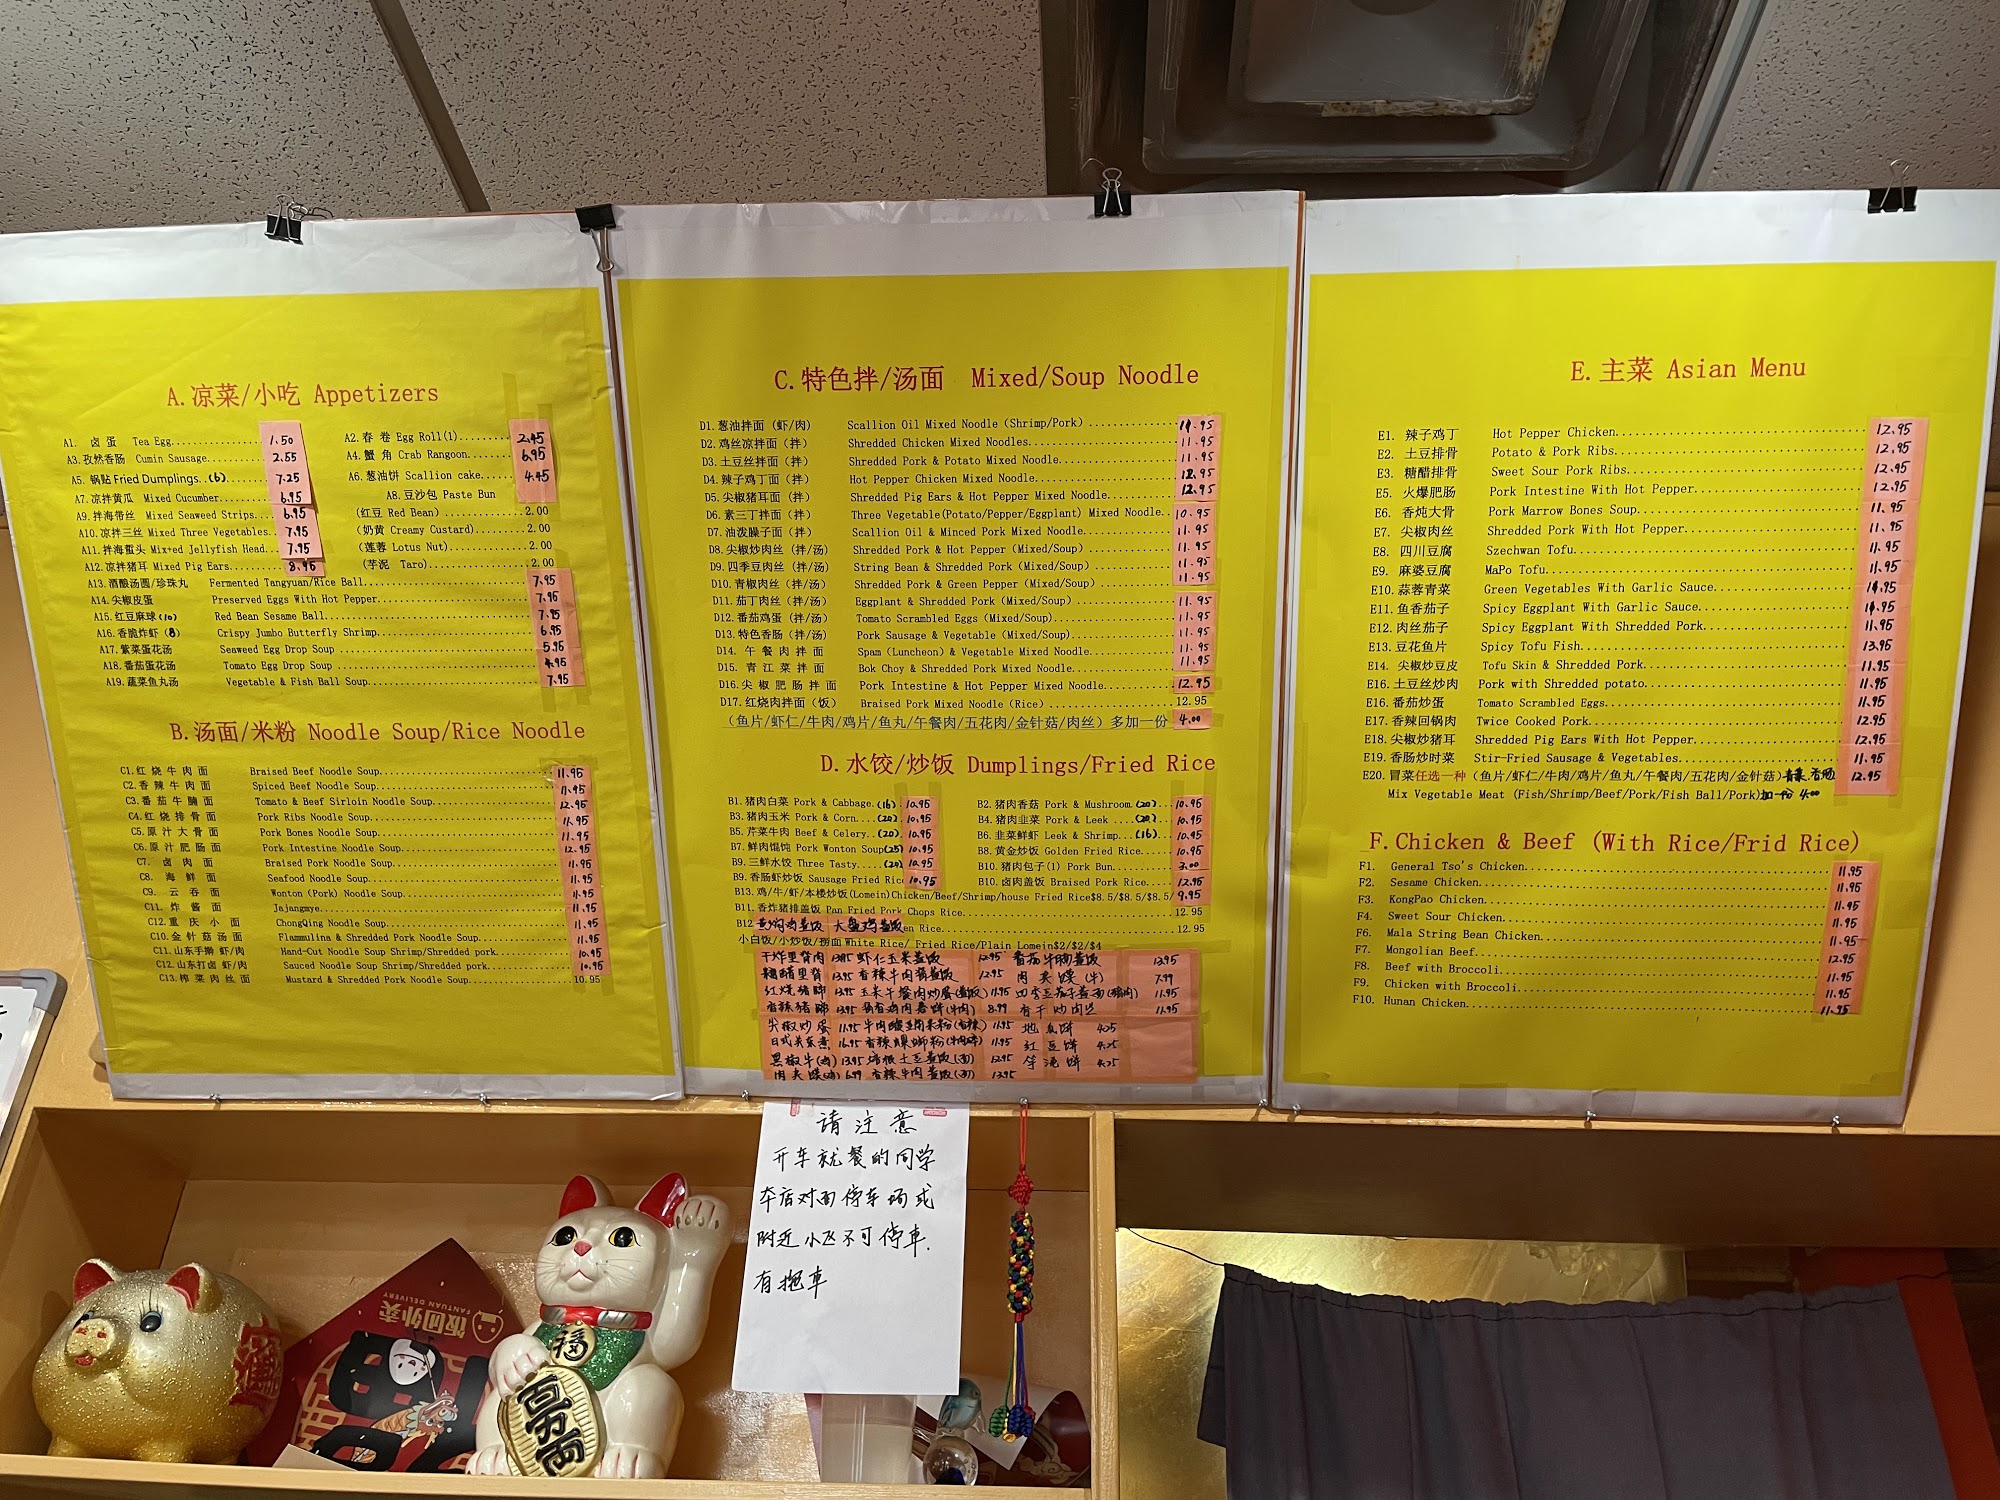 A.凉菜/小吃 Appetizers
A1. 卤蛋 Tea Egg 1.50
A2.春卷 Egg Roll(1) 2.45
A3.孜然香肠 Cumin Sausage 2.55
A4.蟹角 Crab Rangoon 6.95
A5. 锅贴 Fried Dumplings..(6) 7.25
A6.葱油饼 Scallion cake 4.45
A7.凉拌黄瓜 Mixed Cucumber 6.95
A8.豆沙包 Paste Bun
A9.拌海带丝 Mixed Seaweed Strips 6.95
(红豆 Red Bean) 2.00
A10.凉拌三丝 Mixed Three Vegetables 7.95
(奶黄 Creamy Custard) 2.00
A11.拌海蜇头 Mix+ed Jellyfish Head 7.95
(莲蓉 Lotus Nut) 2.00
A12.凉拌猪耳 Mixed Pig Ears 8.95
(芋泥 Taro) 2.00
A13.酒酿汤圆/珍珠丸 Fermented Tangyuan/Rice Ball 7.95
A14.尖椒皮蛋 Preserved Eggs With Hot Pepper 7.95
A15.红豆麻球(10) Red Bean Sesame Ball 7.95
A16.香脆炸虾(8) Crispy Jumbo Butterfly Shrimp 6.95
A17.紫菜蛋花汤 Seaweed Egg Drop Soup 5.95
A18.番茄蛋花汤 Tomato Egg Drop Soup 4.95
A19.蔬菜鱼丸汤 Vegetable & Fish Ball Soup 7.95
B.汤面/米粉 Noodle Soup/Rice Noodle
C1.红烧牛肉面 Braised Beef Noodle Soup 11.95
C2.香辣牛肉面 Spiced Beef Noodle Soup 11.95
C3.番茄牛腩面 Tomato & Beef Sirloin Noodle Soup 12.95
C4.红烧排骨面 Pork Ribs Noodle Soup 11.95
C5.原汁大骨面 Pork Bones Noodle Soup 11.95
C6.原汁肥肠面 Pork Intestine Noodle Soup 12.95
C7. 卤肉面 Braised Pork Noodle Soup 11.95
C8. 海鲜面 Seafood Noodle Soup 11.95
C9. 云吞面 Wonton (Pork) Noodle Soup 11.95
C11. 炸酱面 Jajangmye 11.95
C12.重庆小面 ChongQing Noodle Soup 11.95
C10.金针菇汤面 Flammulina & Shredded Pork Noodle Soup 11.95
C11.山东手擀 虾/肉 Hand-Cut Noodle Soup Shrimp/Shredded pork 10.95
C12.山东打卤 虾/肉 Sauced Noodle Soup Shrimp/Shredded pork 10.95
C13.榨菜肉丝面 Mustard & Shredded Pork Noodle Soup 10.95
C.特色拌/汤面 Mixed/Soup Noodle
D1.葱油拌面 (虾/肉) Scallion Oil Mixed Noodle (Shrimp/Pork) 11.95
D2.鸡丝凉拌面 (拌) Shredded Chicken Mixed Noodles 11.95
D3.土豆丝拌面 (拌) Shredded Pork & Potato Mixed Noodle 11.95
D4.辣子鸡丁面 (拌) Hot Pepper Chicken Mixed Noodle 12.95
D5.尖椒猪耳面 (拌) Shredded Pig Ears & Hot Pepper Mixed Noodle 12.95
D6.素三丁拌面 (拌) Three Vegetable(Potato/Pepper/Eggplant) Mixed Noodle 10.95
D7.油泼臊子面 (拌) Scallion Oil & Minced Pork Mixed Noodle 11.95
D8.尖椒炒肉丝 (拌/汤) Shredded Pork & Hot Pepper (Mixed/Soup) 11.95
D9.四季豆肉丝 (拌/汤) String Bean & Shredded Pork (Mixed/Soup) 11.95
D10.青椒肉丝 (拌/汤) Shredded Pork & Green Pepper (Mixed/Soup) 11.95
D11.茄丁肉丝 (拌/汤) Eggplant & Shredded Pork (Mixed/Soup) 11.95
D12.番茄鸡蛋 (拌/汤) Tomato Scrambled Eggs (Mixed/Soup) 11.95
D13.特色香肠 (拌/汤) Pork Sausage & Vegetable (Mixed/Soup) 11.95
D14. 午餐肉拌面 Spam (Luncheon) & Vegetable Mixed Noodle 11.95
D15. 青江菜拌面 Bok Choy & Shredded Pork Mixed Noodle 11.95
D16.尖椒肥肠拌面 Pork Intestine & Hot Pepper Mixed Noodle 12.95
D17.红烧肉拌面(饭) Braised Pork Mixed Noodle (Rice) 12.95
(鱼片/虾仁/牛肉/鸡片/鱼丸/午餐肉/五花肉/金针菇/肉丝) 多加一份 4.00
D.水饺/炒饭 Dumplings/Fried Rice
B1.猪肉白菜 Pork & Cabbage (16) 10.95
B2.猪肉香菇 Pork & Mushroom (20) 10.95
B3.猪肉玉米 Pork & Corn (20) 10.95
B4.猪肉韭菜 Pork & Leek (20) 10.95
B5.芹菜牛肉 Beef & Celery (20) 10.95
B6.韭菜鲜虾 Leek & Shrimp (16) 10.95
B7.鲜肉馄饨 Pork Wonton Soup(25) 10.95
B8.黄金炒饭 Golden Fried Rice 10.95
B9.三鲜水饺 Three Tasty (20) 10.95
B10.猪肉包子(1) Pork Bun 3.00
B9.香肠虾炒饭 Sausage Fried Rice 10.95
B10.卤肉盖饭 Braised Pork Rice 12.95
B13.鸡/牛/虾/本楼炒饭(Lomein)Chicken/Beef/Shrimp/house Fried Rice$8.5/$8.5/$8.5/ 9.95
B11.香炸猪排盖饭 Pan Fried Pork Chops Rice 12.95
B12 黄焖鸡盖饭 大盘鸡盖饭en Rice 12.95
小白饭/小炒饭/捞面 White Rice/ Fried Rice/Plain Lomein$2/$2/$4
干炸里脊肉 13.95 虾仁玉米盖饭 12.95 番茄牛腩盖饭 13.95
糖醋里脊 13.95 香辣牛肉盖饭 12.95 肉夹馍(牛) 7.99
红烧猪蹄 13.95 玉米午餐肉炒蛋(盖饭) 11.95 四季豆茄子盖面(猪肉) 11.95
香辣猪蹄 13.95 8.99 香干炒肉丝 11.95
尖椒炒蛋 11.95 11.95 地瓜饼 4.25
日式关东煮 16.95 香辣螺蛳粉 11.95 红豆饼 4.25
黑椒牛 13.95 土豆盖饭 12.95 饼 4.25
肉夹馍 6.99 香辣牛肉盖饭 13.95
E.主菜 Asian Menu
E1. 辣子鸡丁 Hot Pepper Chicken 12.95
E2. 土豆排骨 Potato & Pork Ribs 12.95
E3. 糖醋排骨 Sweet Sour Pork Ribs 12.95
E5. 火爆肥肠 Pork Intestine With Hot Pepper 12.95
E6. 香炖大骨 Pork Marrow Bones Soup 11.95
E7. 尖椒肉丝 Shredded Pork With Hot Pepper 11.95
E8. 四川豆腐 Szechwan Tofu 11.95
E9. 麻婆豆腐 MaPo Tofu 11.95
E10.蒜蓉青菜 Green Vegetables With Garlic Sauce 11.95
E11.鱼香茄子 Spicy Eggplant With Garlic Sauce 11.95
E12.肉丝茄子 Spicy Eggplant With Shredded Pork 11.95
E13.豆花鱼片 Spicy Tofu Fish 13.95
E14. 尖椒炒豆皮 Tofu Skin & Shredded Pork 11.95
E16.土豆丝炒肉 Pork with Shredded potato 11.95
E16.番茄炒蛋 Tomato Scrambled Eggs 11.95
E17.香辣回锅肉 Twice Cooked Pork 12.95
E18.尖椒炒猪耳 Shredded Pig Ears With Hot Pepper 12.95
E19.香肠炒时菜 Stir-Fried Sausage & Vegetables 11.95
E20.冒菜任选一种 (鱼片/虾仁/牛肉/鸡片/鱼丸/午餐肉/五花肉/金针菇)青菜.香肠 12.95
Mix Vegetable Meat (Fish/Shrimp/Beef/Pork/Fish Ball/Pork)加一份 4.00
F.Chicken & Beef (With Rice/Frid Rice)
F1. General Tso's Chicken 11.95
F2. Sesame Chicken 11.95
F3. KongPao Chicken 11.95
F4. Sweet Sour Chicken 11.95
F6. Mala String Bean Chicken 11.95
F7. Mongolian Beef 12.95
F8. Beef with Broccoli 11.95
F9. Chicken with Broccoli 11.95
F10. Hunan Chicken 11.95
请注意
开车就餐的同学
本店对面停车场或
附近小区不可停车.
有拖车
饭团外卖
FANTUAN DELIVERY
福
百万両